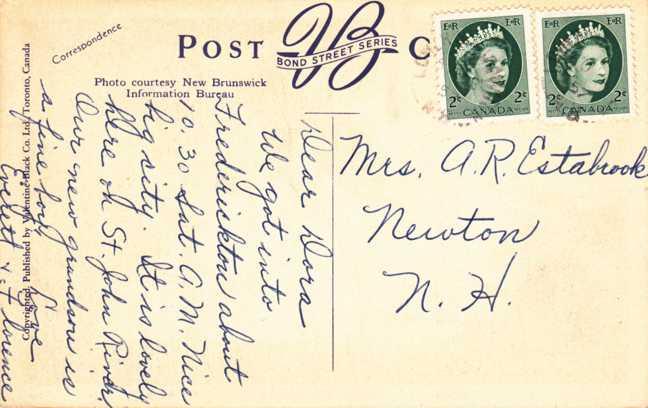 Correspondence
POST C
VB
BOND STREET SERIES
Photo courtesy New Brunswick
Information Bureau
E R E R
2¢ 2¢
CANADA
E R E R
2¢ 2¢
CANADA
Dear Dora
We got into
Frederickton about
10.30 Sat. A.M. Nice
big sity. It is lovely
here on St. John River.
Our new grandson is
a fine boy. Love
Everett & Florence
Mrs. A.R. Estabrook
Newton
N. H.
Copyrighted, Published by Valentine-Black Co. Ltd., Toronto, Canada